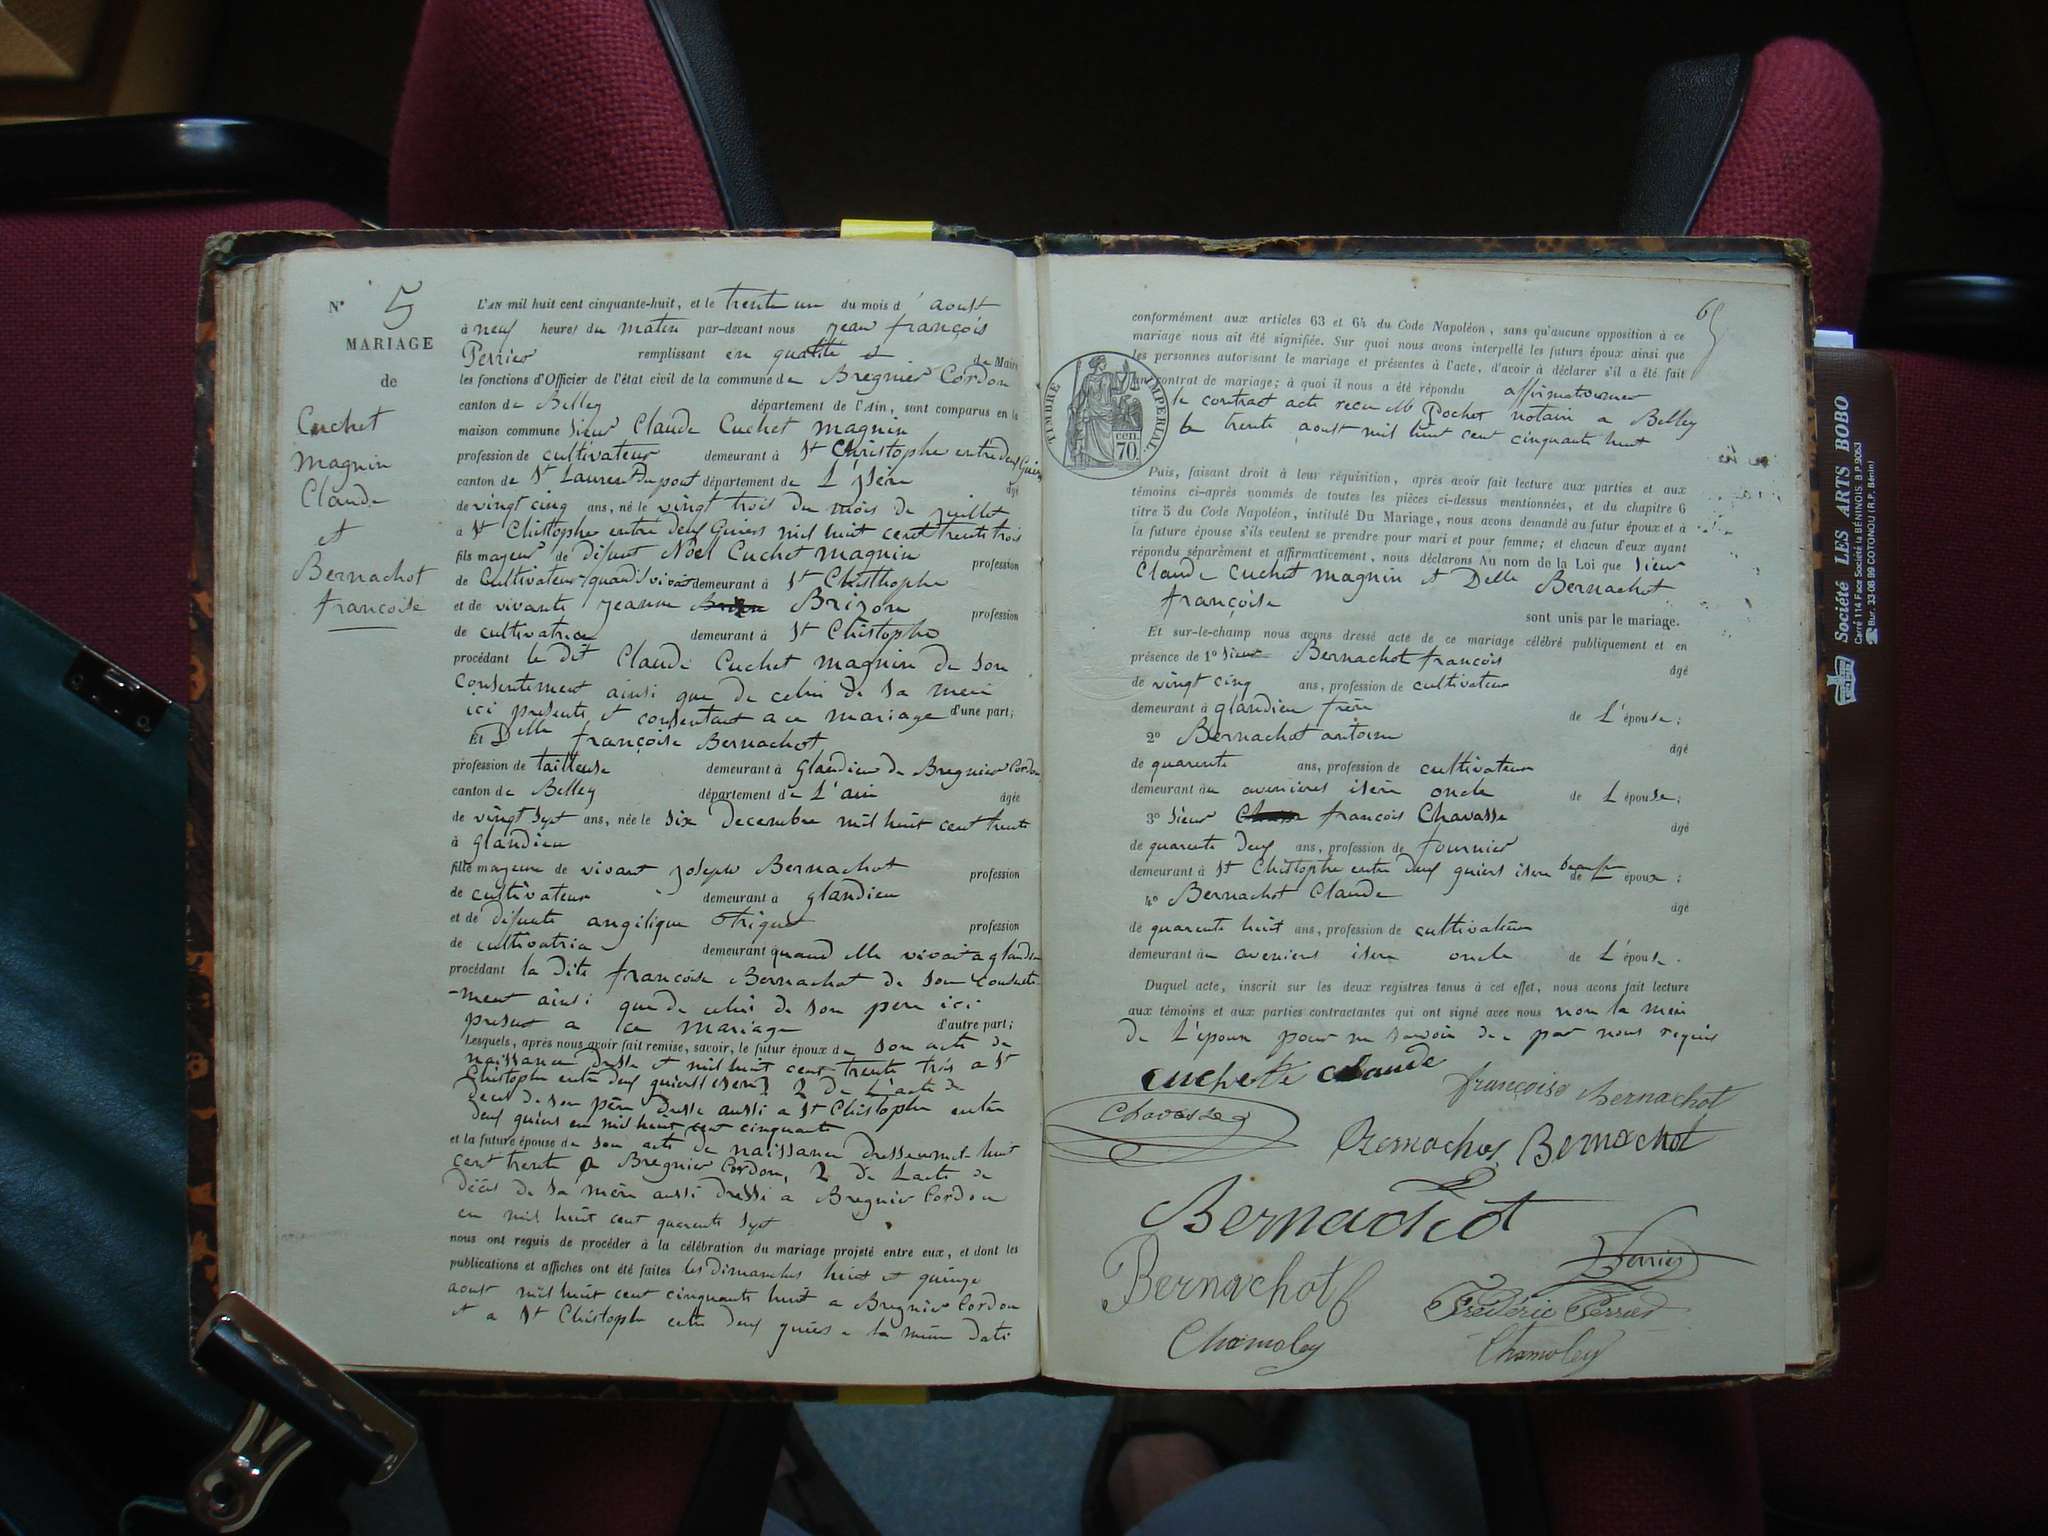 N° 5
MARIAGE
de
Cuchet
magnin
Claude
et
Bernachot
françoise
L'AN mil huit cent cinquante-huit, et le trente un du mois d' aoust
à neuf heures du matin par-devant nous jean françois
Perrier remplissant en qualité de Maire
les fonctions d'Officier de l'état civil de la commune de Bregnier Cordon
canton de Belley département de l'Ain, sont comparus en la
maison commune sieur Claude Cuchet magnin
profession de cultivateur demeurant à St Christophe entre deux Guiers
canton de St Laurent Dupont département de L'isère âgé
de vingt cinq ans, né le vingt trois du mois de juillet
à St Christophe entre deux Guiers mil huit cent trente trois
fils majeur de défunt Noël Cuchet magnin profession
de Cultivateur quand vivait demeurant à St Christhophe
et de vivante jeanne Brizon profession
de cultivatrice demeurant à St Christophe
procédant le dit Claude Cuchet magnin de son
consentement ainsi que de celui de sa mère
ici presente et consentant a ce mariage d'une part;
Et Delle françoise Bernachot
profession de tailleuse demeurant à Glandieu de Bregnier Cordon
canton de Belley département de L'ain âgée
de vingt sept ans, née le six decembre mil huit cent trente
à Glandieu
fille majeure de vivant joseph Bernachot profession
de cultivateur demeurant à glandieu
et de défunte angélique profession
de cultivatrice demeurant quand elle vivait a glandieu
procédant la dite françoise Bernachot de son consente-
-ment ainsi que de celui de son pere ici
present a ce mariage d'autre part;
Lesquels, après nous avoir fait remise, savoir, le futur époux de son acte de
naissance dressé et mil huit cent trente trois a St
Christophe entre deux guiers (isere) 2 de L'acte de
deces de son père dressé aussi a St Christophe entre
deux guiers en mil huit cent cinquante
et la future épouse de son acte de naissance dressé en mil huit
cent trente a Bregnier Cordon, 2 de Lacte de
décès de sa mère aussi dressé a Bregnier Cordon
en mil huit cent quarente sept
nous ont requis de procéder à la célébration du mariage projeté entre eux, et dont les
publications et affiches ont été faites les dimanches huit et quinze
aoust mil huit cent cinquante huit a Bregnier Cordon
et a St Christophe entre deux guiers a la même date
65
conformément aux articles 63 et 64 du Code Napoléon, sans qu'aucune opposition à ce
mariage nous ait été signifiée. Sur quoi nous avons interpellé les futurs époux ainsi que
les personnes autorisant le mariage et présentes à l'acte, d'avoir à déclarer s'il a été fait
un contrat de mariage; à quoi il nous a été répondu affirmativement
le contract acte recu Me Pochet notaire a Belley
le trente aoust mil huit cent cinquante huit
TIMBRE IMPERIAL
cen.
70.
Puis, faisant droit à leur réquisition, après avoir fait lecture aux parties et aux
témoins ci-après nommés de toutes les pièces ci-dessus mentionnées, et du chapitre 6
titre 5 du Code Napoléon, intitulé Du Mariage, nous avons demandé au futur époux et à
la future épouse s'ils veulent se prendre pour mari et pour femme; et chacun d'eux ayant
répondu séparément et affirmativement, nous déclarons Au nom de la Loi que sieur
Claude Cuchet magnin et Delle Bernachot
françoise
sont unis par le mariage.
Et sur-le-champ nous avons dressé acte de ce mariage célébré publiquement et en
présence de 1° sieur Bernachot françois âgé
de vingt cinq ans, profession de cultivateur
demeurant à glandieu frère de L'épouse;
2° Bernachot antoine âgé
de quarente ans, profession de cultivateur
demeurant au avenieres isère oncle de L épouse;
3° sieur françois Chavasse âgé
de quarente deux ans, profession de fournier
demeurant à St Christophe entre deux guiers isere beaufrere de L époux;
4° Bernachot Claude âgé
de quarente huit ans, profession de cultivateur
demeurant au avenieres isere oncle de L'épouse.
Duquel acte, inscrit sur les deux registres tenus à cet effet, nous avons fait lecture
aux témoins et aux parties contractantes qui ont signé avec nous non la mère
de L'époux pour ne savoir de par nous requis
cuchet claude
françoise Bernachot
Chavasse
Bernachot
Bernachot
Bernachot
Perrier
Fréderic Perrier
Chamoley
Chamoley
Société LES ARTS BOBO
Carré 114 Face Société la BÉNINOIS. B.P.9053
Bur. 33 06 99 COTONOU (R.P. Bénin)